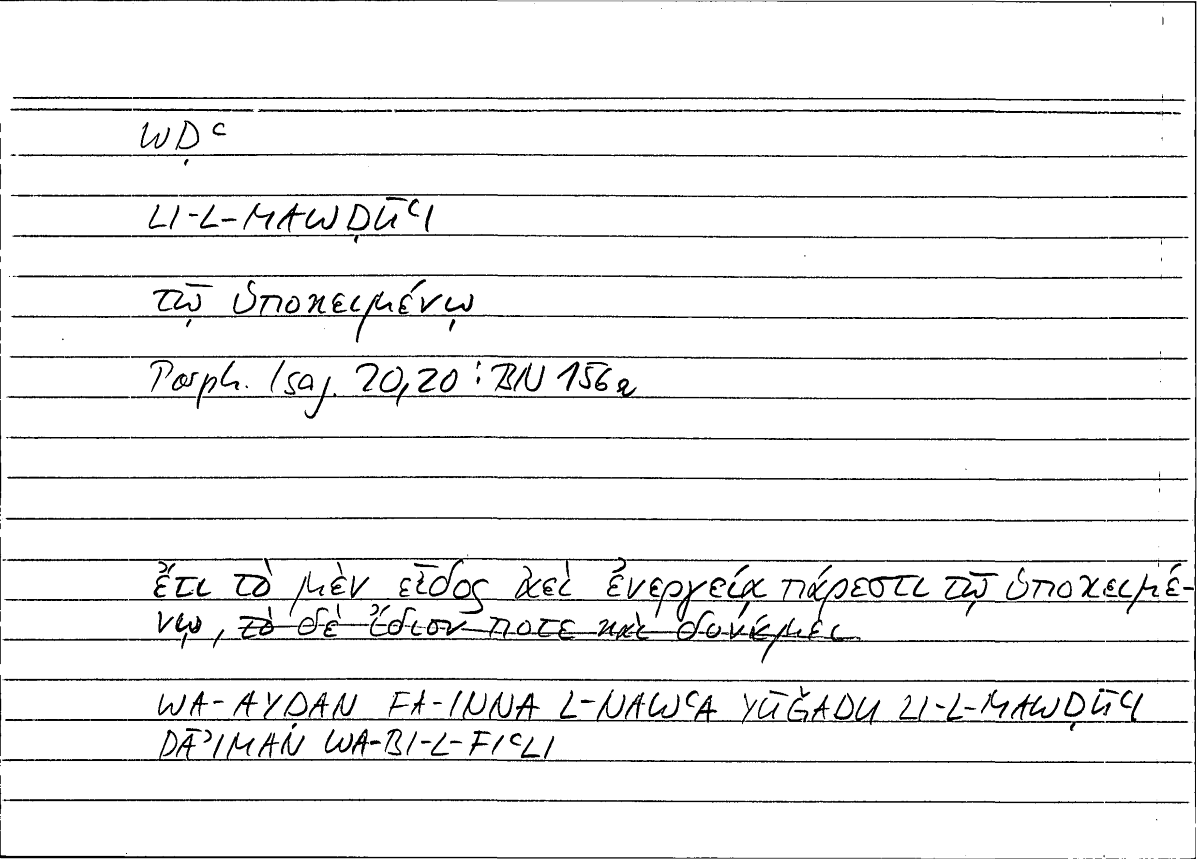 WḌʿ
LI-L-MAWḌŪʿI
τῷ ὑποκειμένῳ
Porph. Isag. 20,20 : BN 156a
ἔτι τὸ μὲν εἶδος ἀεὶ ἐνεργείᾳ πάρεστι τῷ ὑποκειμέ-
νῳ, τὸ δὲ ἴδιον ποτε καὶ δυνάμει
WA-AYḌAN FA-INNA L-NAWʿA YŪǦADU LI-L-MAWḌŪʿI
DĀʾIMAN WA-BI-L-FIʿLI